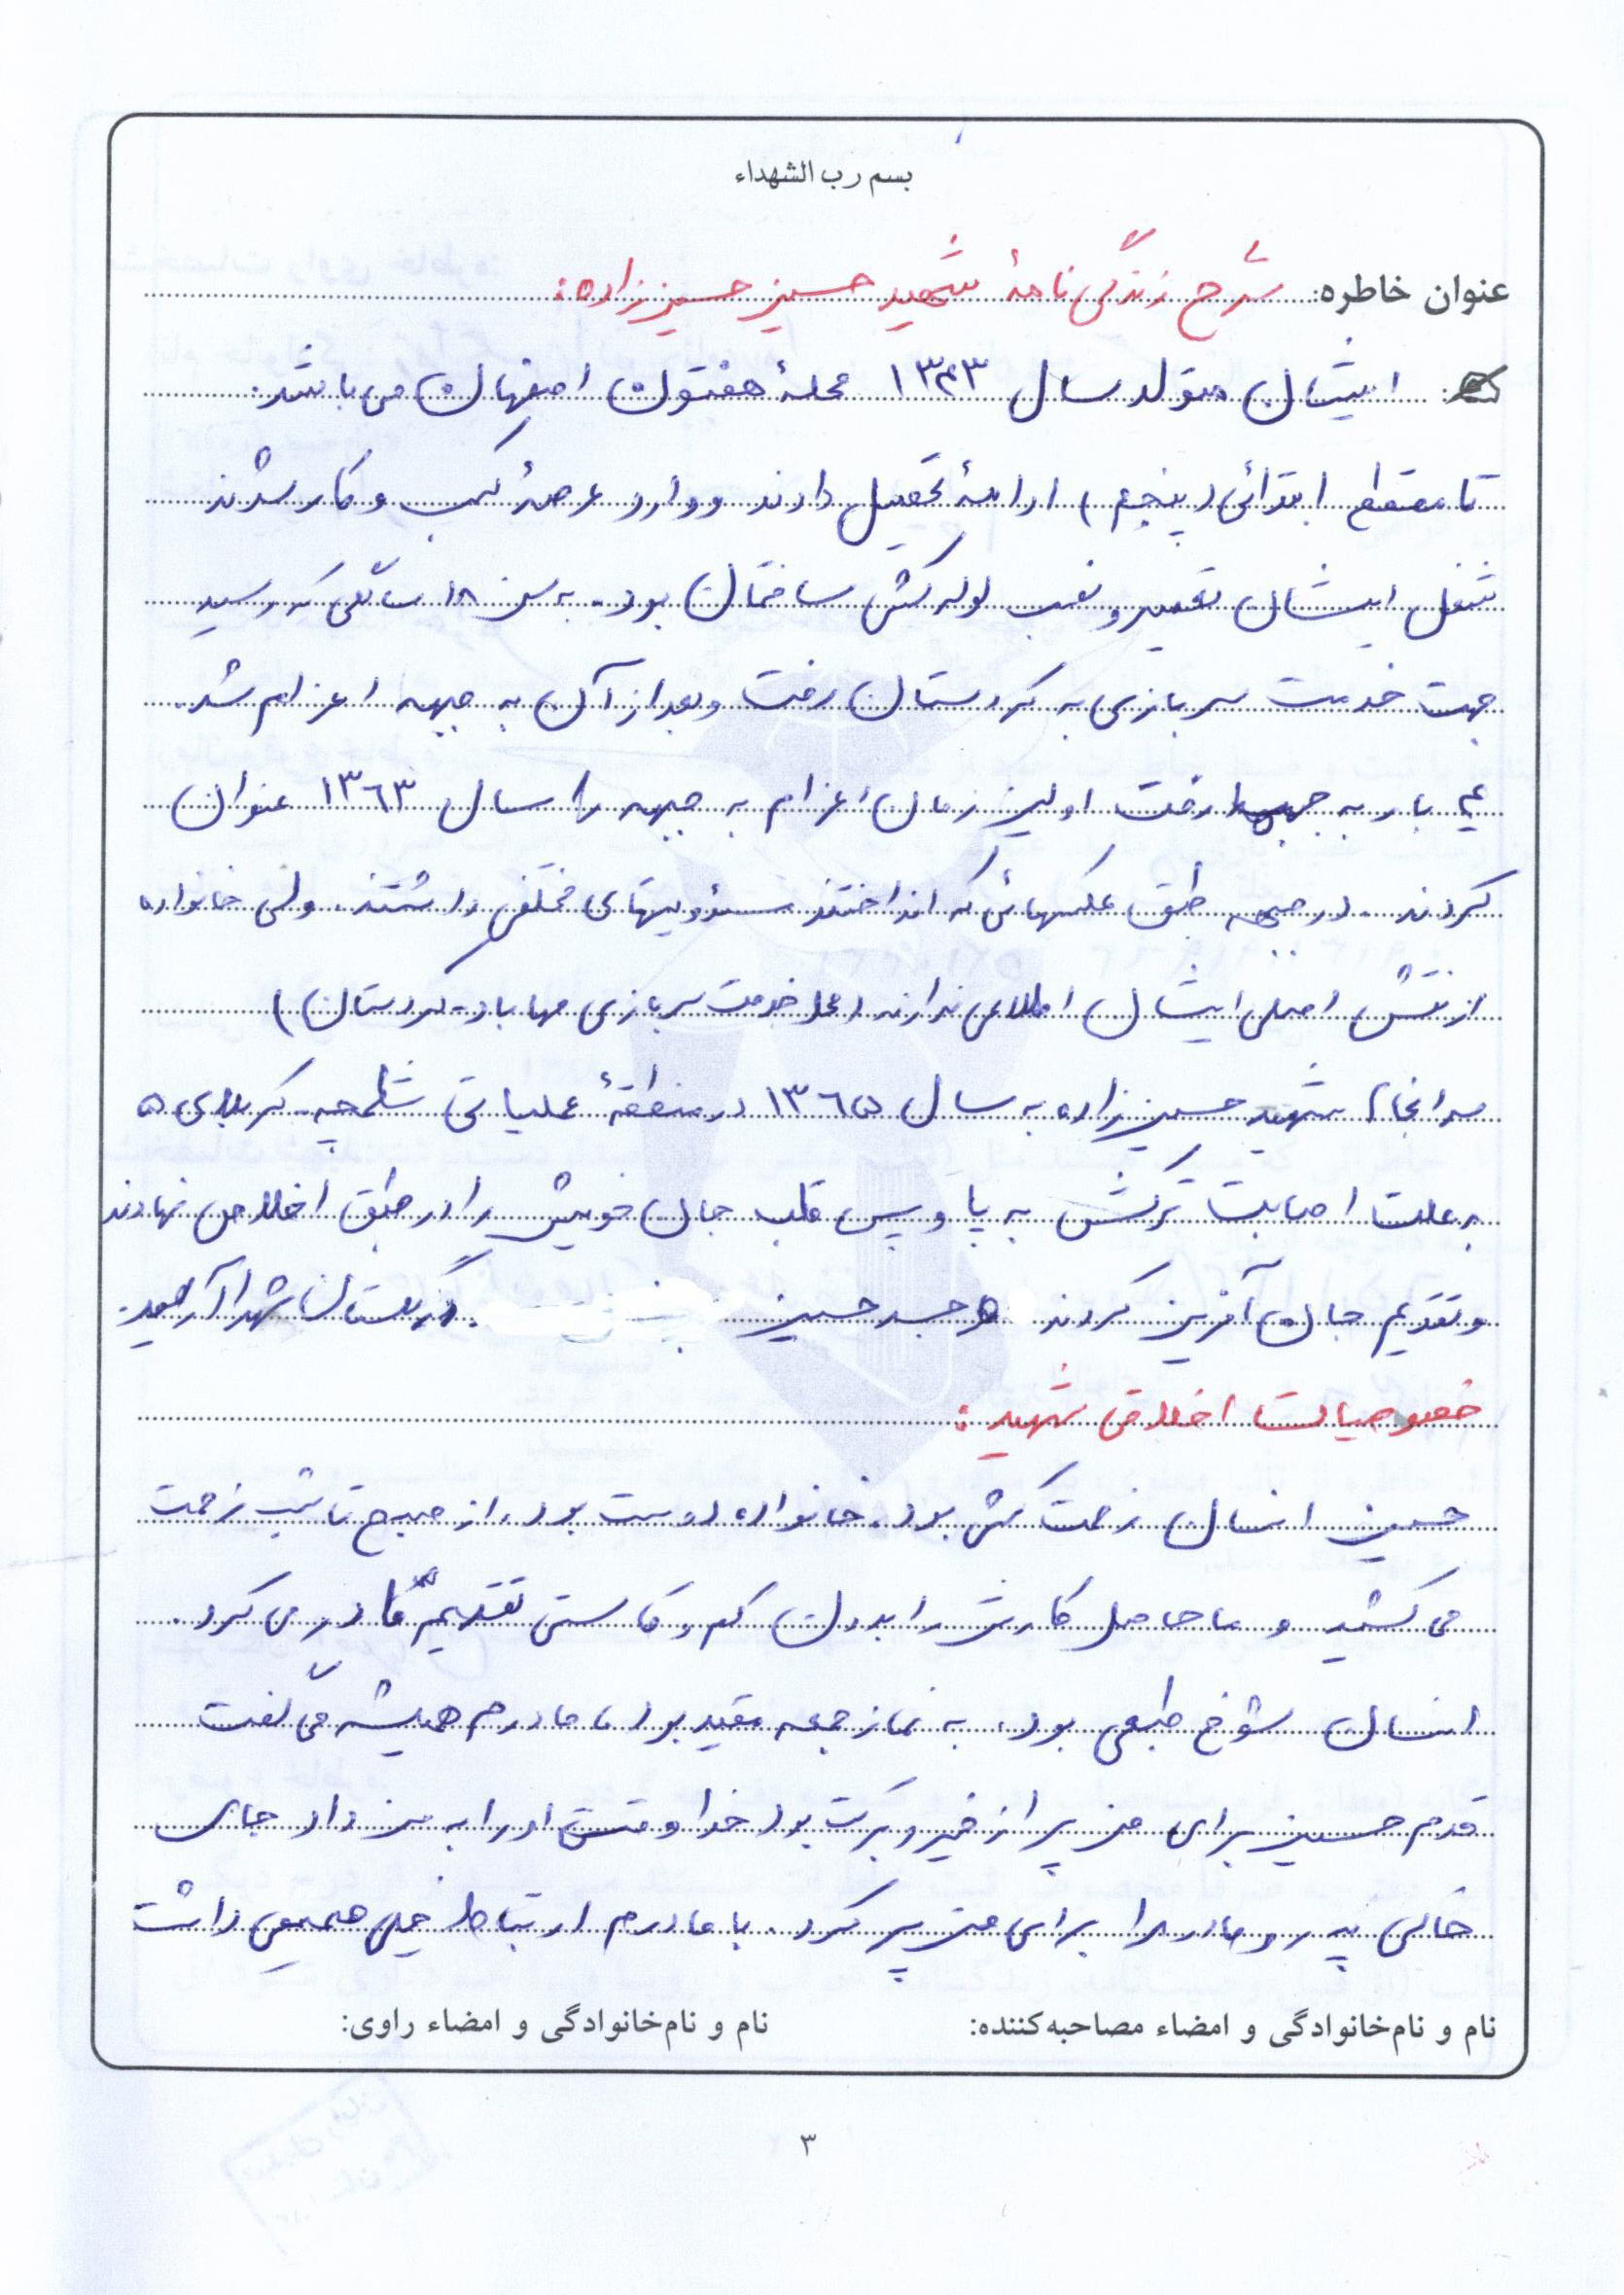 بسم رب الشهداء
عنوان خاطره: شرح زندگی نامهٔ شهید حسین حسین زاده:
ایشان متولد سال ۱۳۴۳ محلهٔ هفتون اصفهان می باشد.
تا مقطع ابتدائی (پنجم) ادامهٔ تحصیل دادند و وارد عرصهٔ کسب و کار شدند
شغل ایشان تعمیر و نصب لوله کشی ساختمان بود. به سن ۱۸ سالگی که رسید
جهت خدمت سربازی به کردستان رفت و بعد از آن به جبهه اعزام شد.
بار به جبهه رفت اولین زمان اعزام به جبهه را سال ۱۳۶۳ عنوان
کردند. در جبهه طبق عکسهائی که انداختند مسئولیتهای مختلفی داشتند. ولی خانواده
از نقش اصلی ایشان اطلاعی ندارند (محل خدمت سربازی مهاباد - کردستان)
سرانجام شهید حسین زاده به سال ۱۳۶۵ در منطقهٔ عملیاتی شلمچه کربلای ۵
به علت اصابت ترکش به پا و پس قلب جان خویش را در طبق اخلاص نهادند
و تقدیم جان آفرین کردند و جسد حسین در گلستان شهدا آرمید.
خصوصیات اخلاقی شهید:
حسین انسان زحمت کش بود. خانواده دوست بود، از صبح تا شب زحمت
می کشید و ماحاصل کارش را بدون کم و کاستی تقدیم مادر می کرد.
انسان شوخ طبعی بود، به نماز جمعه مقید بود، مادرم همیشه می گفت
قدم حسین برای من پر از خیر و برکت بود خدا وقتی او را به من داد جای
خالی پدر و مادر را برای من پر کرد. با مادرم ارتباط خیلی صمیمی داشت
نام و نام‌خانوادگی و امضاء مصاحبه‌کننده: نام و نام‌خانوادگی و امضاء راوی:
۳